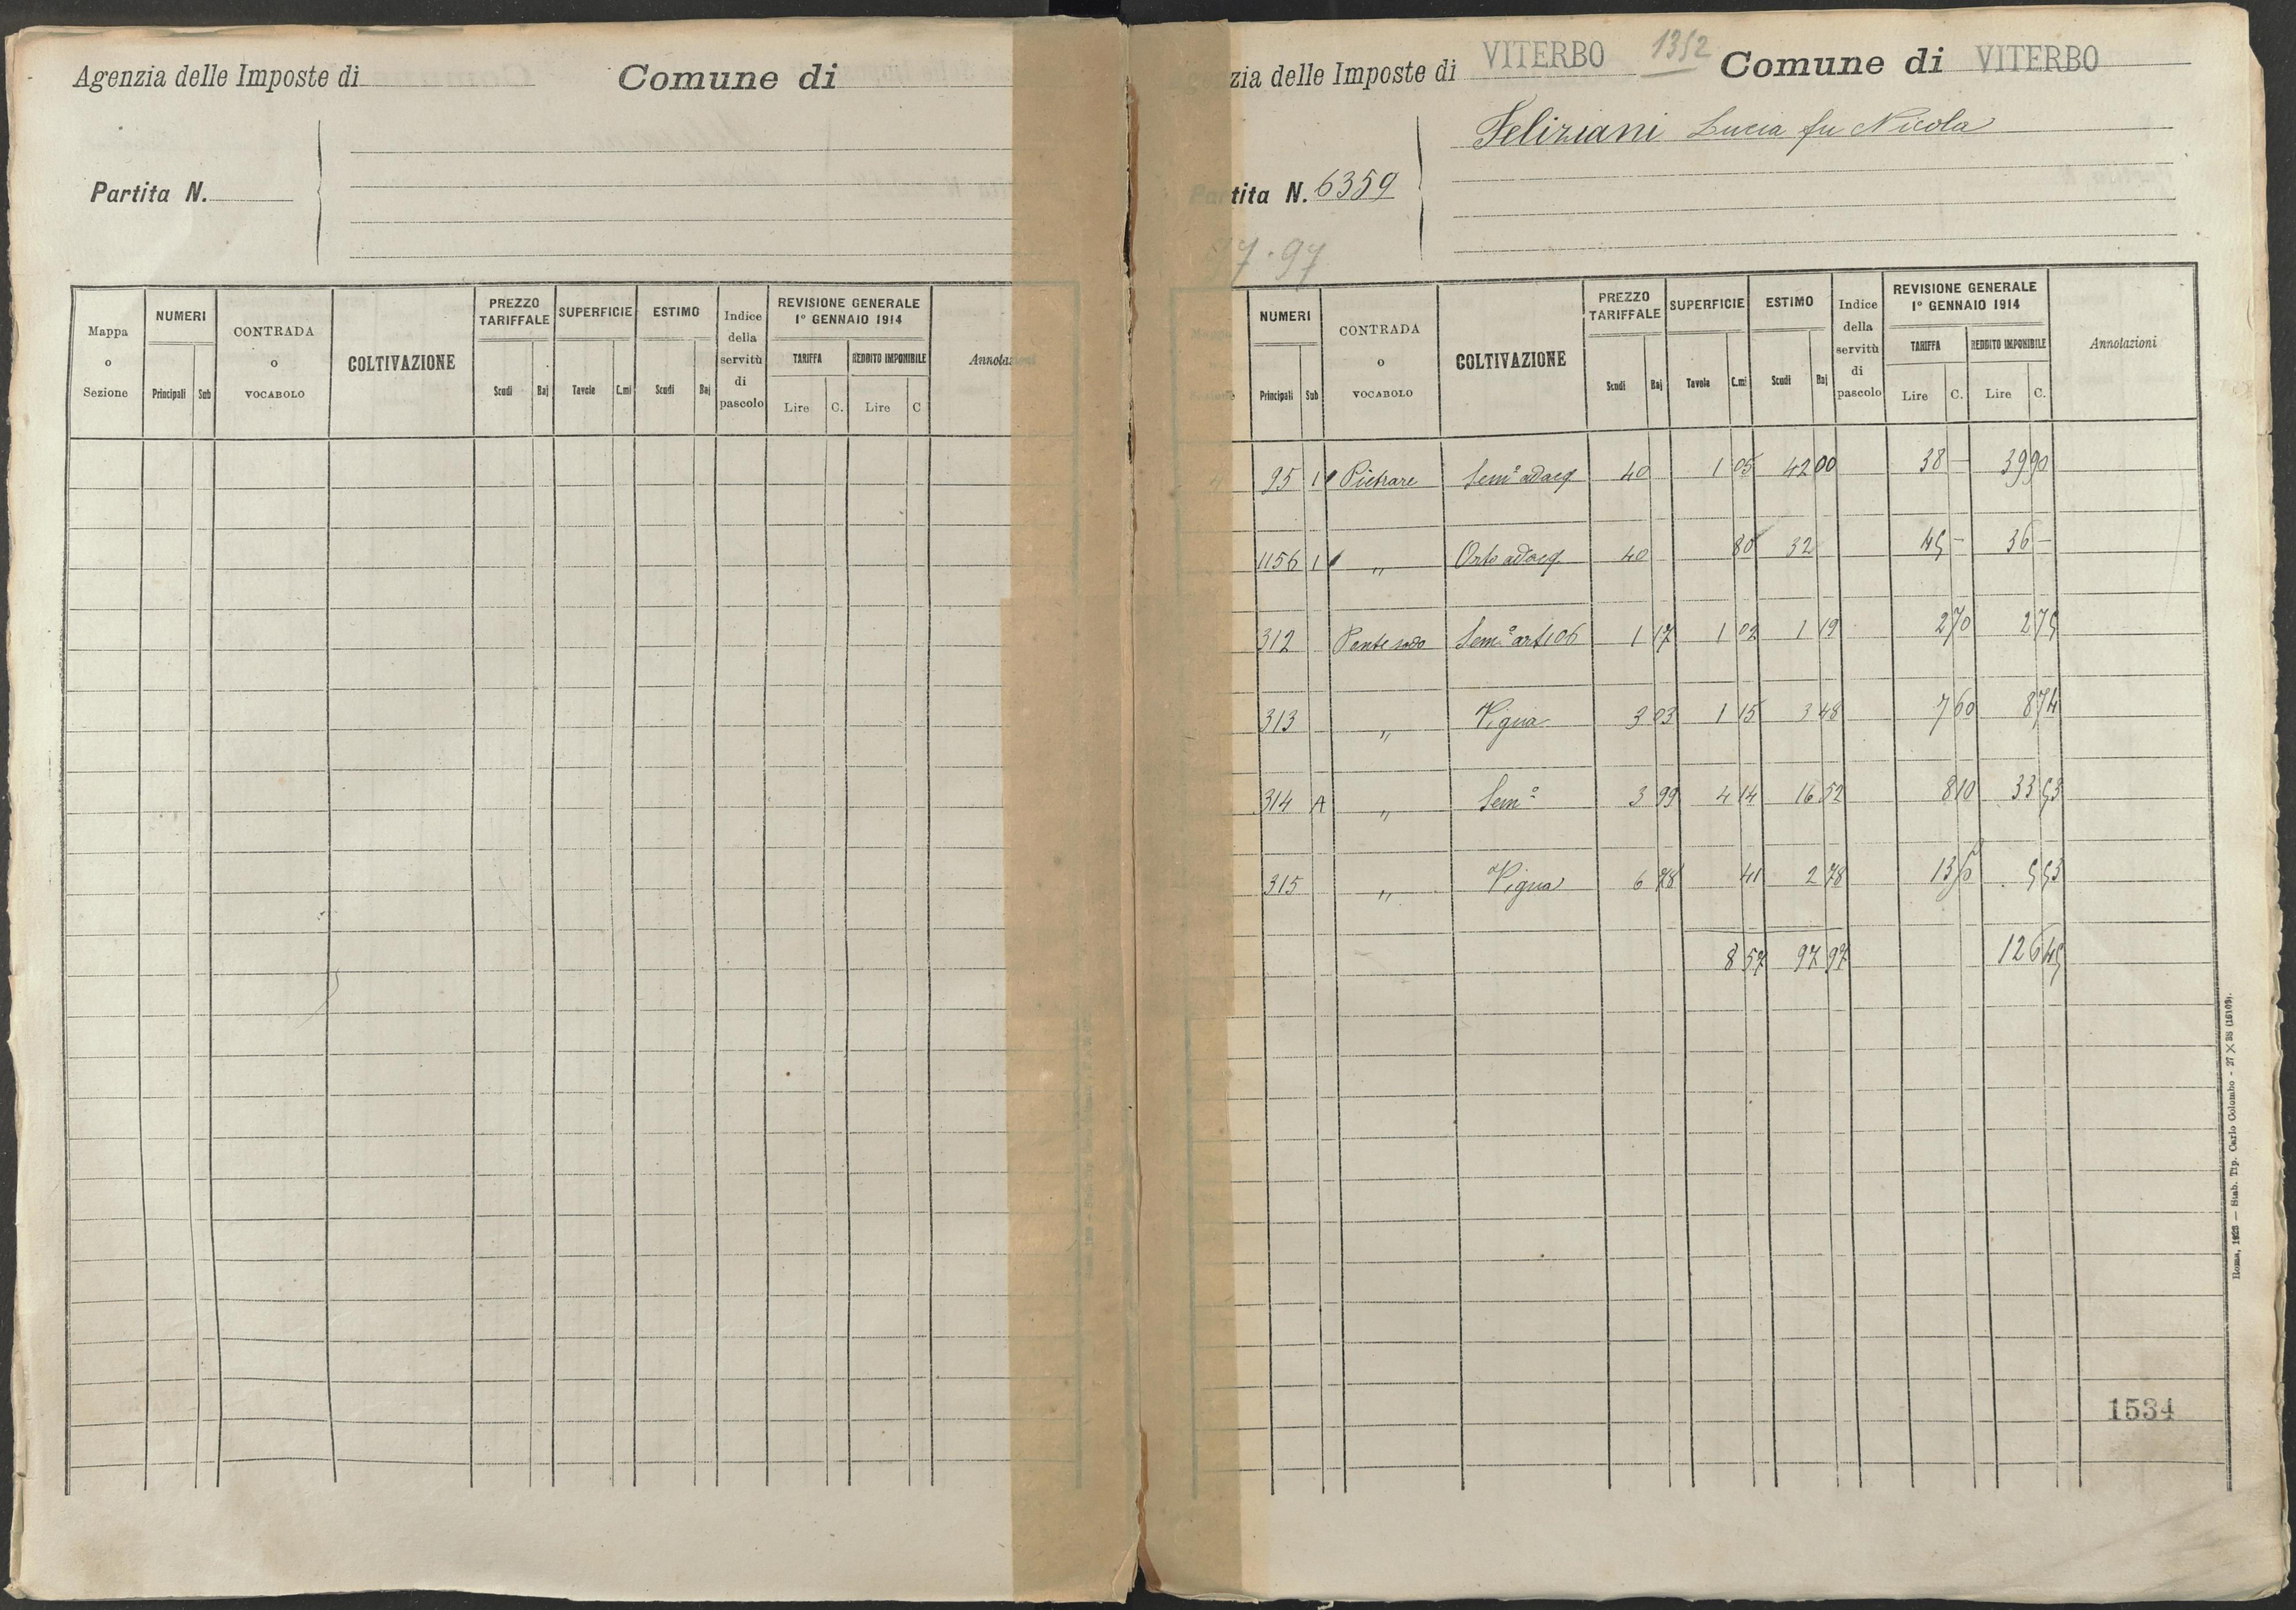 Agenzia delle Imposte di
Comune di
Partita N.
Mappa o Sezione
NUMERI
Principali Sub
CONTRADA o VOCABOLO
COLTIVAZIONE
PREZZO TARIFFALE
Scudi Baj
SUPERFICIE
Tavole C.mi
ESTIMO
Scudi Baj
Indice della servitù di pascolo
REVISIONE GENERALE
1º GENNAIO 1914
TARIFFA REDDITO IMPONIBILE
Lire C. Lire C
Annotazioni
zia delle Imposte di VITERBO 1352 Comune di VITERBO
Feliziani Lucia fu Nicola
Partita N. 6359
97.97
NUMERI
Principali Sub
CONTRADA o VOCABOLO
COLTIVAZIONE
PREZZO TARIFFALE
Scudi Baj
SUPERFICIE
Tavole C.mi
ESTIMO
Scudi Baj
Indice della servitù di pascolo
REVISIONE GENERALE
1º GENNAIO 1914
TARIFFA REDDITO IMPONIBILE
Lire C. Lire C.
Annotazioni
4 95 1 Pietrare Semº adacq. 40 1 05 42 00 38 — 39 90
1156 1 " Orto adacq. 40 80 32 45 — 36 —
312 Ponte sodo Semº art 106 1 17 1 02 1 19 2 70 2 75
313 " Vigna 3 03 1 15 3 48 7 60 8 74
314 A " Semº 3 99 4 14 16 52 8 10 33 53
315 " Vigna 6 78 41 2 78 13 50 5 53
8 57 97 97 126 45
1534
Roma, 1923 — Stab. Tip. Carlo Colombo - 27 X 38 (16109).